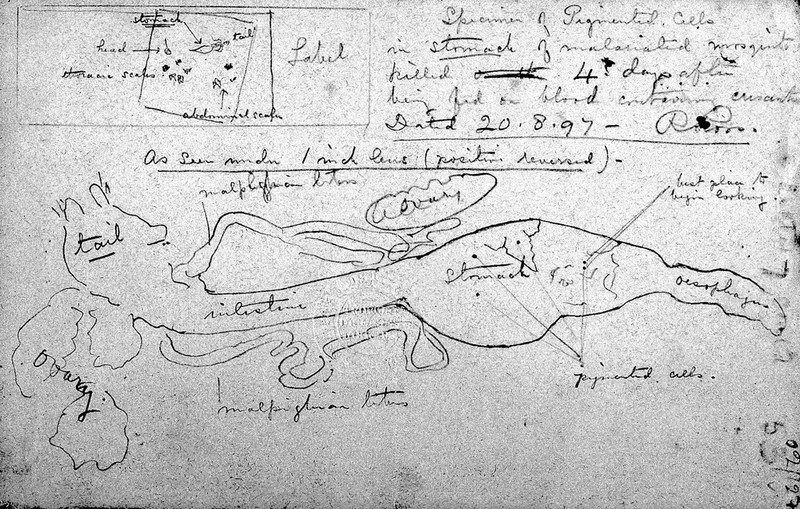 stomach
tail
head
thoracic scales
abdominal scales
Label
Specimen of Pigmented Cells
in stomach of malariated mosquito
killed 4 days after
being fed on blood containing
Datd 20.8.97 - R. Ross.
As seen under 1 inch lens (position reversed) -
malpighian
ovary
best place to
begin looking.
tail
stomach
oesophagus
intestine
ovary
malpighian
pigmented cells.